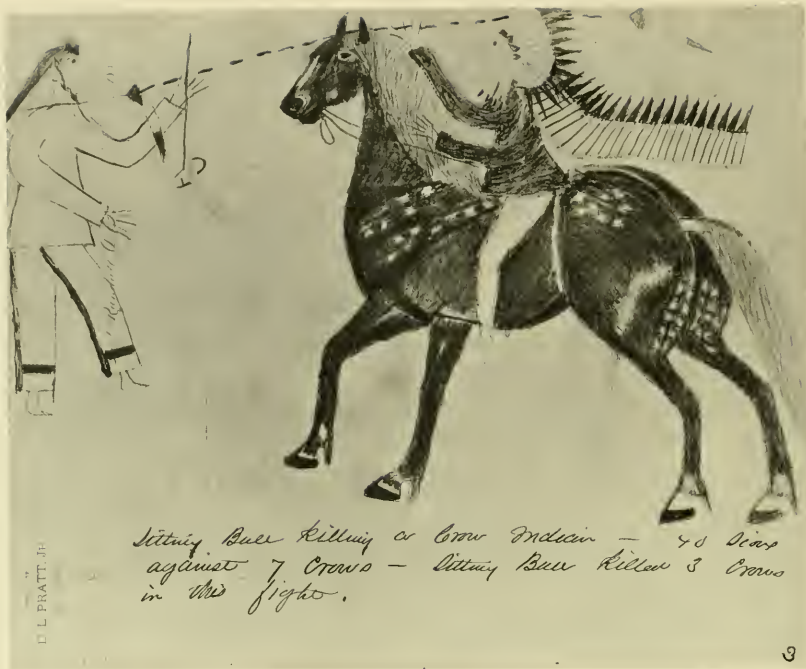 Sitting Bull killing a Crow Indian — 40 Sioux
against 7 Crows — Sitting Bull killed 3 Crows
in this fight.
D L PRATT. JR
3